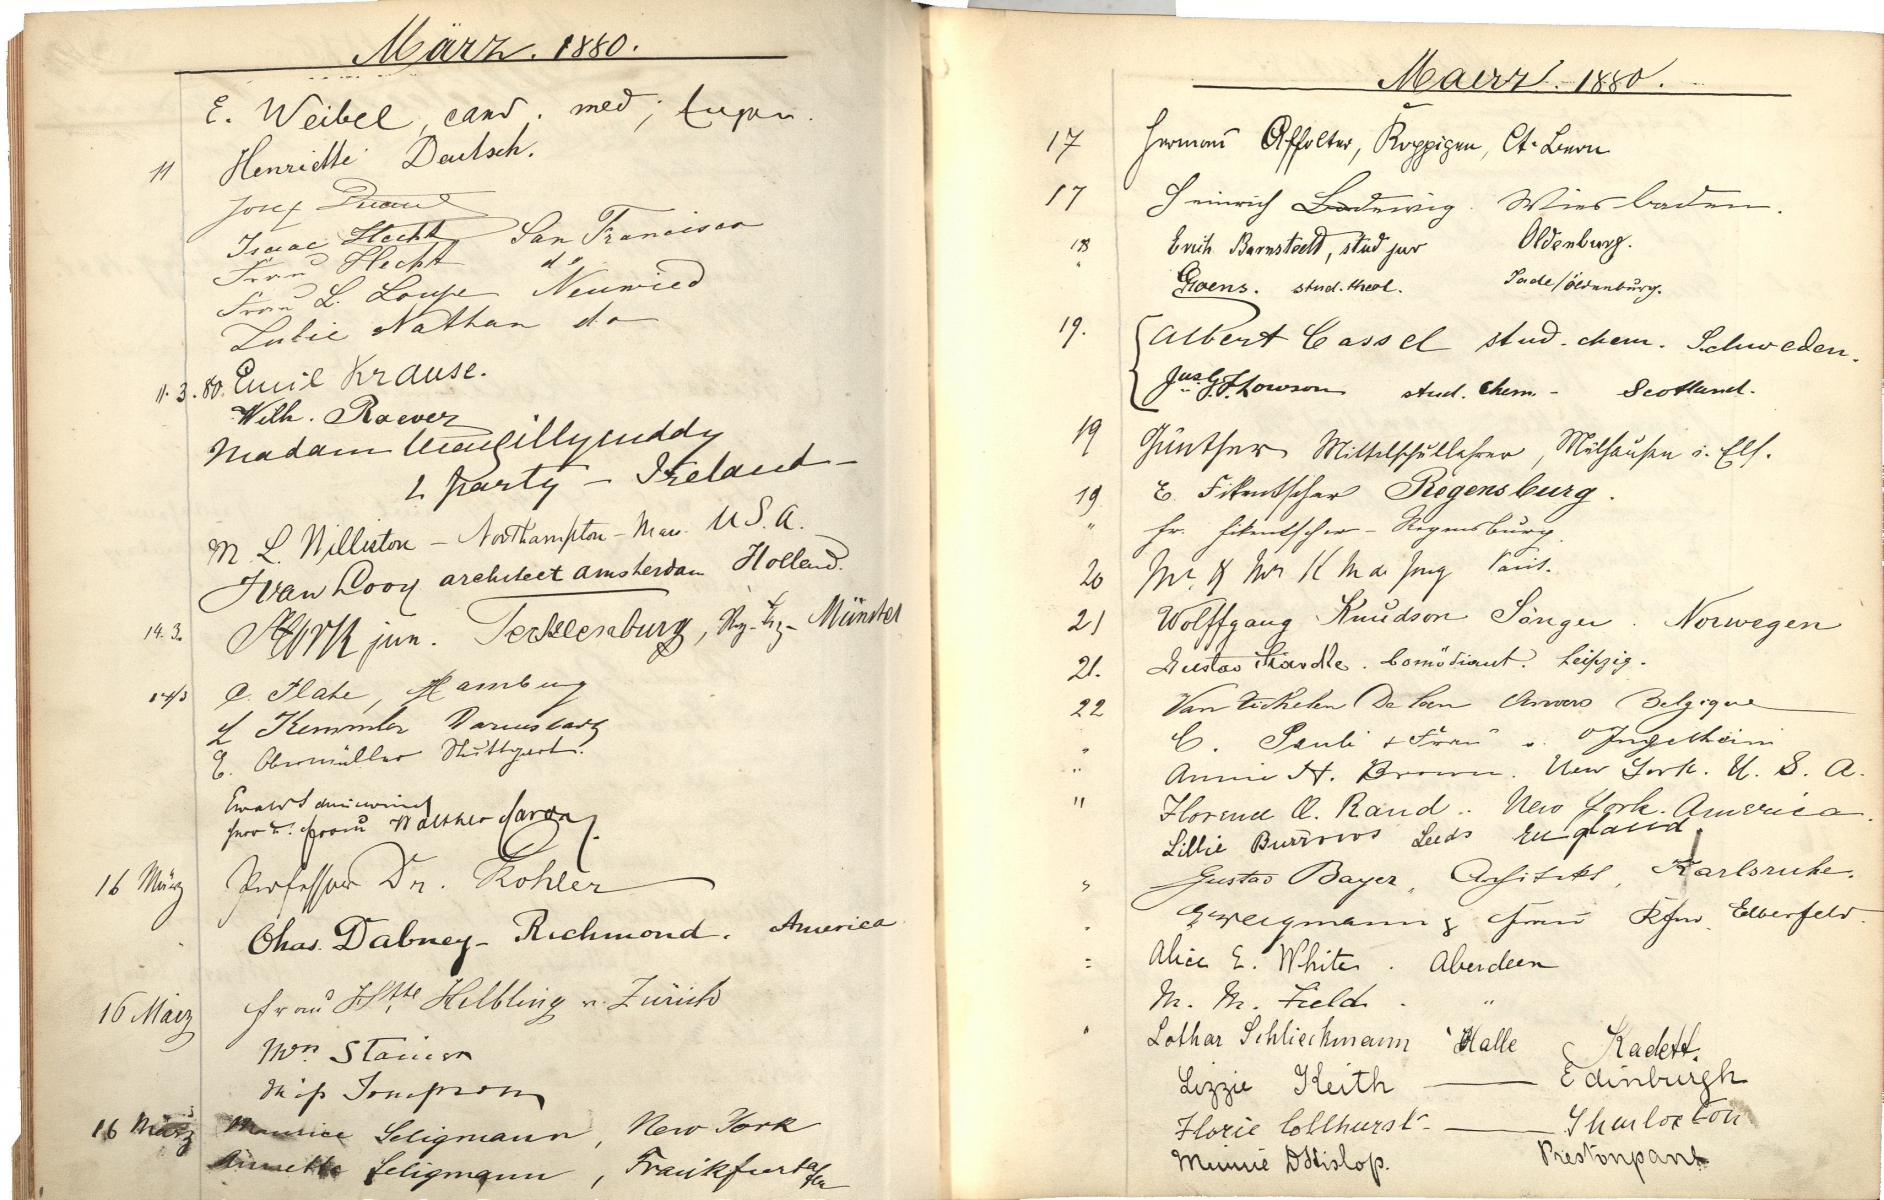 März. 1880.
E. Weibel, cand. med;
11 Henriette Deutsch.
Josef
Isaac Hecht San Francisco
Frau Hecht do
Frau L. Loupe Neuwied
Julie Nathan do
11.3.80. Emil Krause.
Wilh. Roever
Madam MacGillycuddy
& party – Ireland –
M L Williston – Northampton – Mass U.S.A.
J van Looy architect Amsterdam Holland.
14.3. jun. Tecklenburg, Münster
14/3 C. Plate, Hamburg
L Kemmler Darmstadt
E. Obermüller Stuttgart.
Ewald
Herr u. Frau Walther Caron.
16 März Professor Dr. Kohler
Chas. Dabney – Richmond. America
16 März Frau Helbling v. Zürich
Mrs Stainer
Miss Tompson
16 März Maurice Seligmann, New York
Annette Seligmann, Frankfurt a/M
Maerz. 1880.
17 Hermann Affolter, Koppigen, Ct. Bern
17 Heinrich Ludewig. Wiesbaden.
18 Erich Barnstedt, stud jur Oldenburg.
" Goens. stud. theol. Jade/Oldenburg.
19. Albert Cassel stud. chem. Schweden.
Jas. G. F. Lowson stud. chem – Scotland.
19 Günther Mittelschullehrer, Mülhausen i. Els.
19 E. Fikentscher Regensburg.
" Fr. Fikentscher – Regensburg.
20 Mr. & Mrs K M de Jong Paris.
21 Wolffgang Knudson Sönger. Norwegen
21. Gustav Starcke. Comödiant. Leipzig.
22 Van Eickelen De Leen Anvers Belgique
" C. Pauli & Frau v. Ingelheim
" Annie H. Brown. New York. U. S. A.
" Florence O. Rand.. New York. America.
Lillie Burrows Leeds England
" Gustav Bayer, Architekt, Karlsruhe.
" Weigmann & Frau Kfm. Elberfeld.
" Alice E. White. Aberdeen
M. M. Field. "
" Lothar Schlieckmann Halle Kadett.
Lizzie Keith — Edinburgh
Florie Collhurst — Thurloxton
Minnie D Hislop. Prestonpans